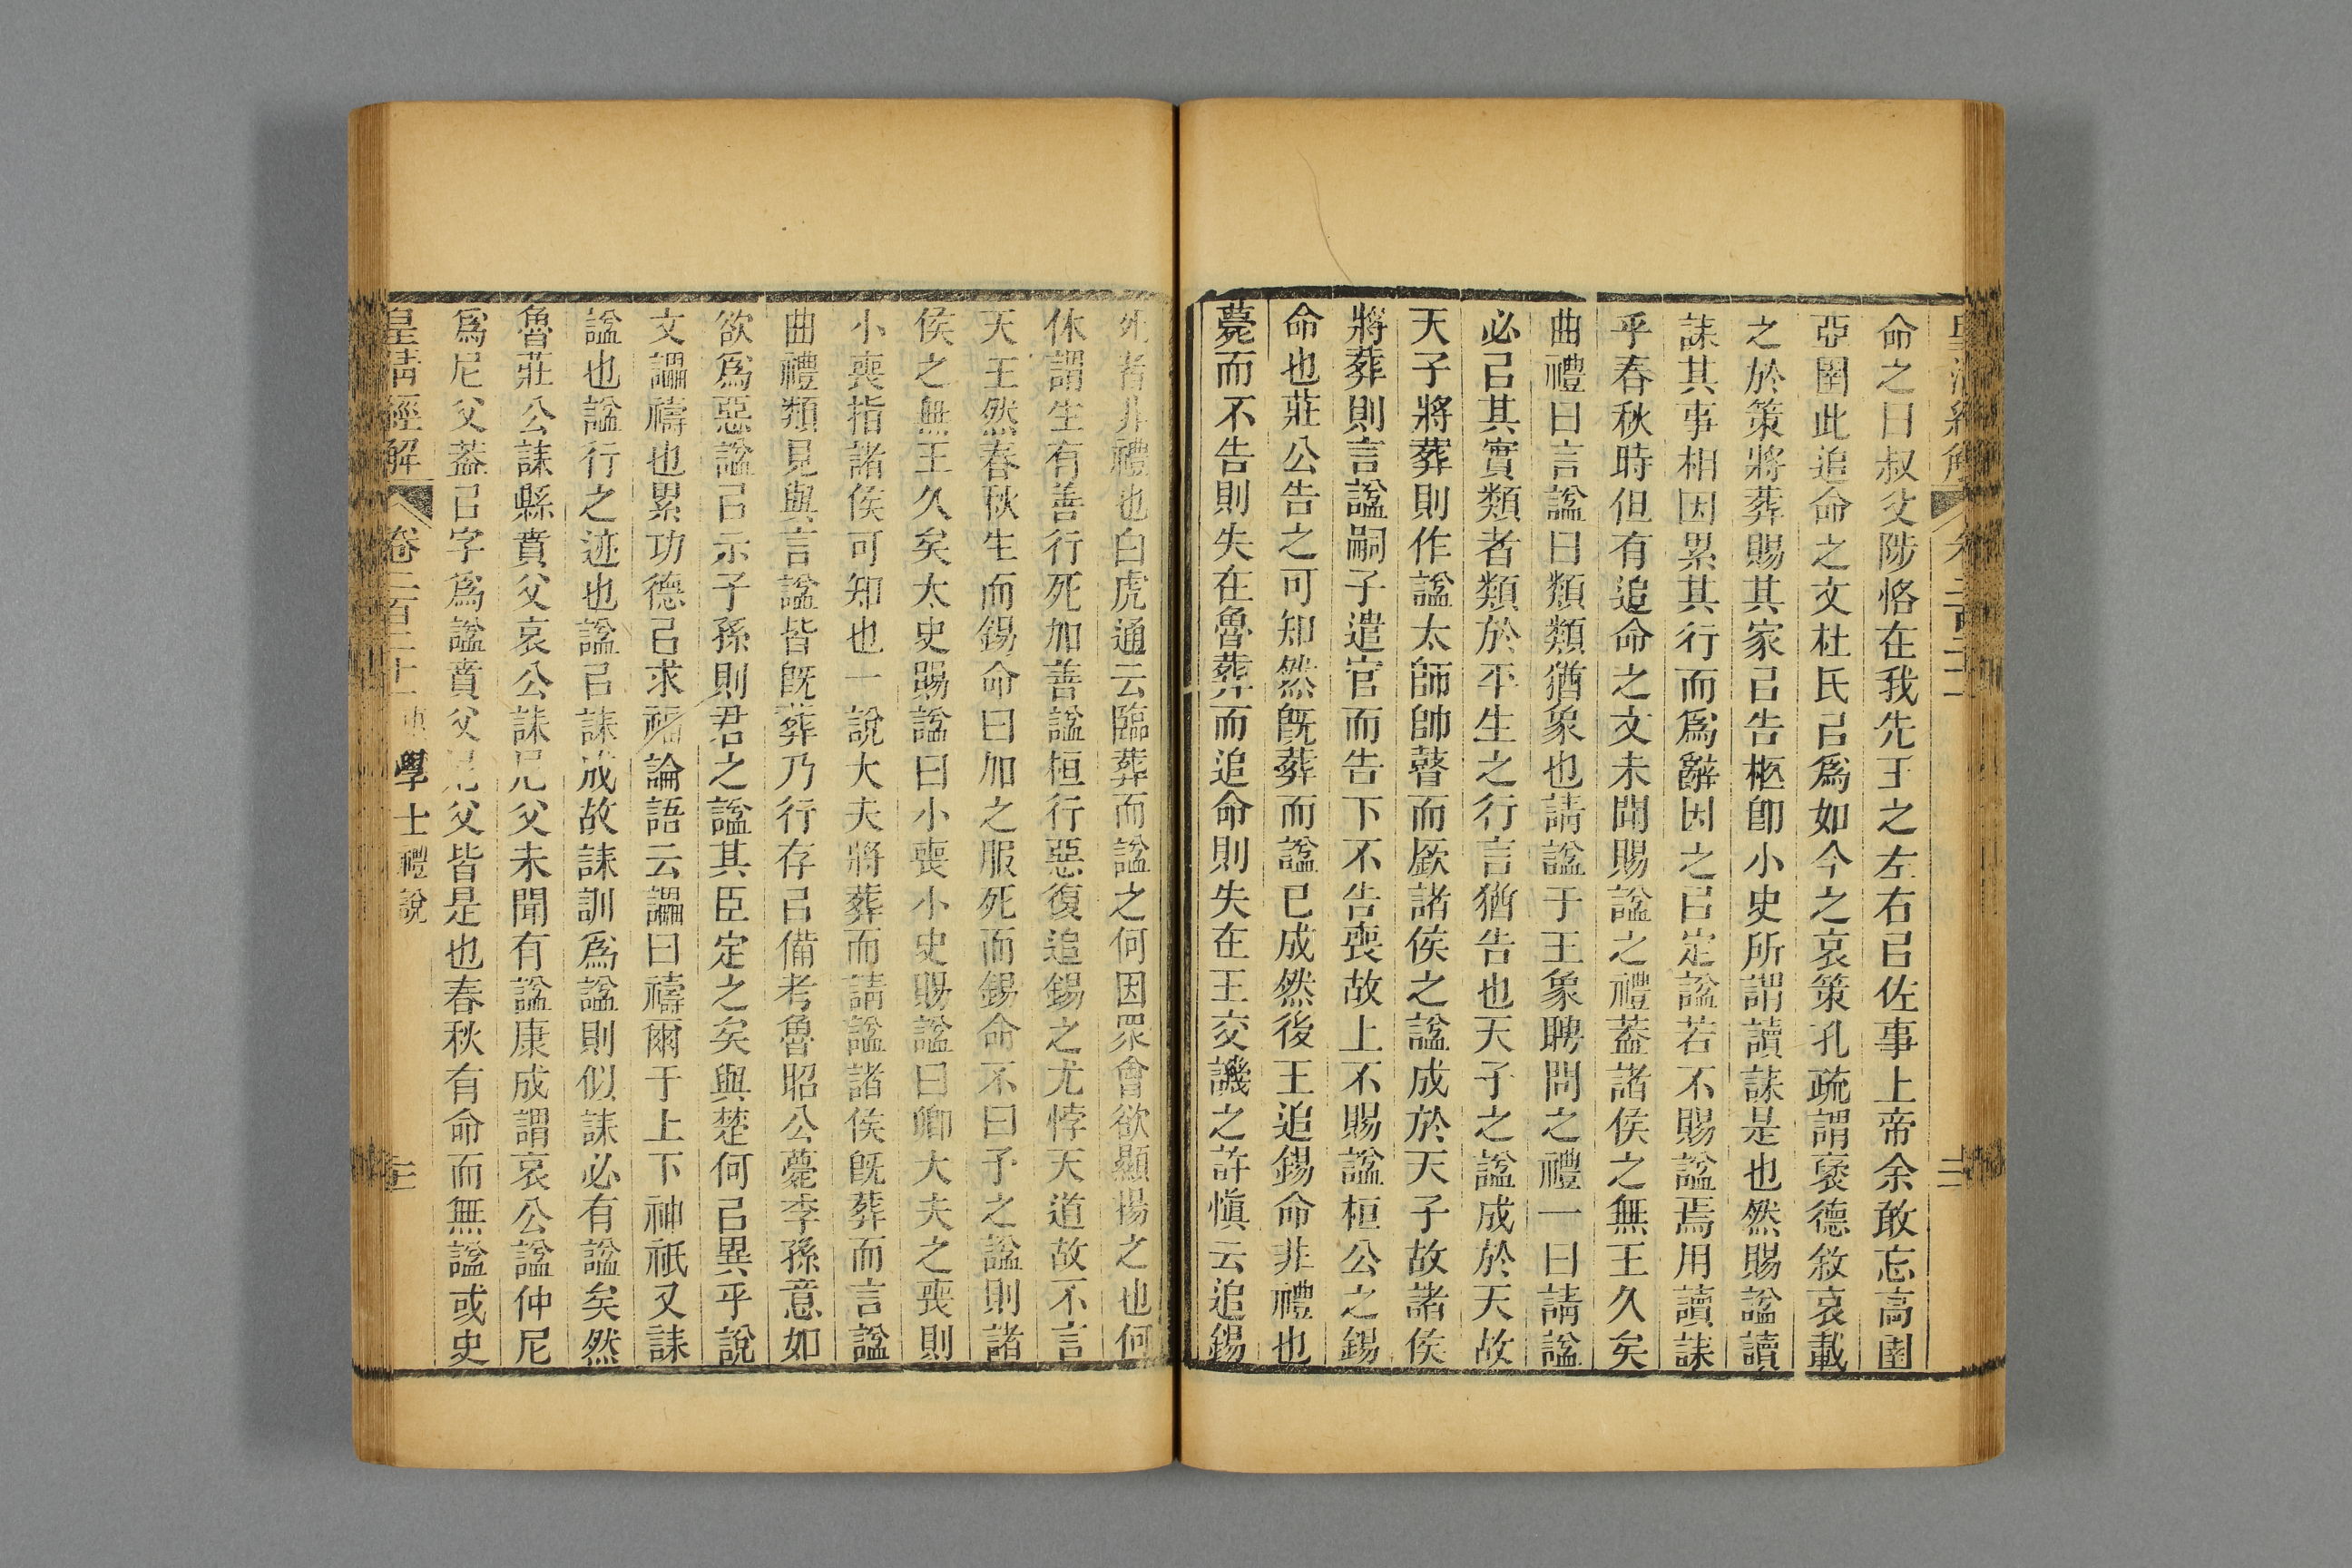 命之曰叔父陟恪在我先王之左右㠯佐事上帝余敢忘高圉
亞圉此追命之文杜氏㠯爲如今之哀策孔疏謂襃德敘哀載
之於策將葬賜其家㠯告柩卽小史所謂讀誄是也然賜諡讀
誄其事相因累其行而爲辭因之㠯定諡若不賜諡焉用讀誄
乎春秋時但有追命之文未聞賜諡之禮葢諸侯之無王久矣
曲禮曰言諡曰類類猶象也請諡于王象聘問之禮一曰請諡
必㠯其實類者類於平生之行言猶告也天子之諡成於天故
天子將葬則作諡太師帥瞽而廞諸侯之諡成於天子故諸侯
將葬則言諡嗣子遣官而告下不告喪故上不賜諡桓公之錫
命也莊公告之可知然旣葬而諡已成然後王追錫命非禮也
薨而不告則失在魯葬而追命則失在王交譏之許愼云追錫
死者非禮也白虎通云臨葬而諡之何因眾會欲顯揚之也何
休謂生有善行死加善諡桓行惡復追錫之尤悖天道故不言
天王然春秋生而錫命曰加之服死而錫命不曰予之諡則諸
侯之無王久矣太史賜諡曰小喪小史賜諡曰卿大夫之喪則
小喪指諸侯可知也一說大夫將葬而請諡諸侯旣葬而言諡
曲禮類見與言諡皆旣葬乃行存㠯備考魯昭公薨季孫意如
欲爲惡諡㠯示子孫則君之諡其臣定之矣與楚何㠯異乎說
文讄禱也累功德㠯求福論語云讄曰禱爾于上下神祇又誄
諡也諡行之迹也諡㠯誄成故誄訓爲諡則似誄必有諡矣然
魯莊公誄縣賁父哀公誄尼父未聞有諡康成謂哀公諡仲尼
爲尼父葢㠯字爲諡賁父尼父皆是也春秋有命而無諡或史
皇清經解 卷二百二十 學士禮說